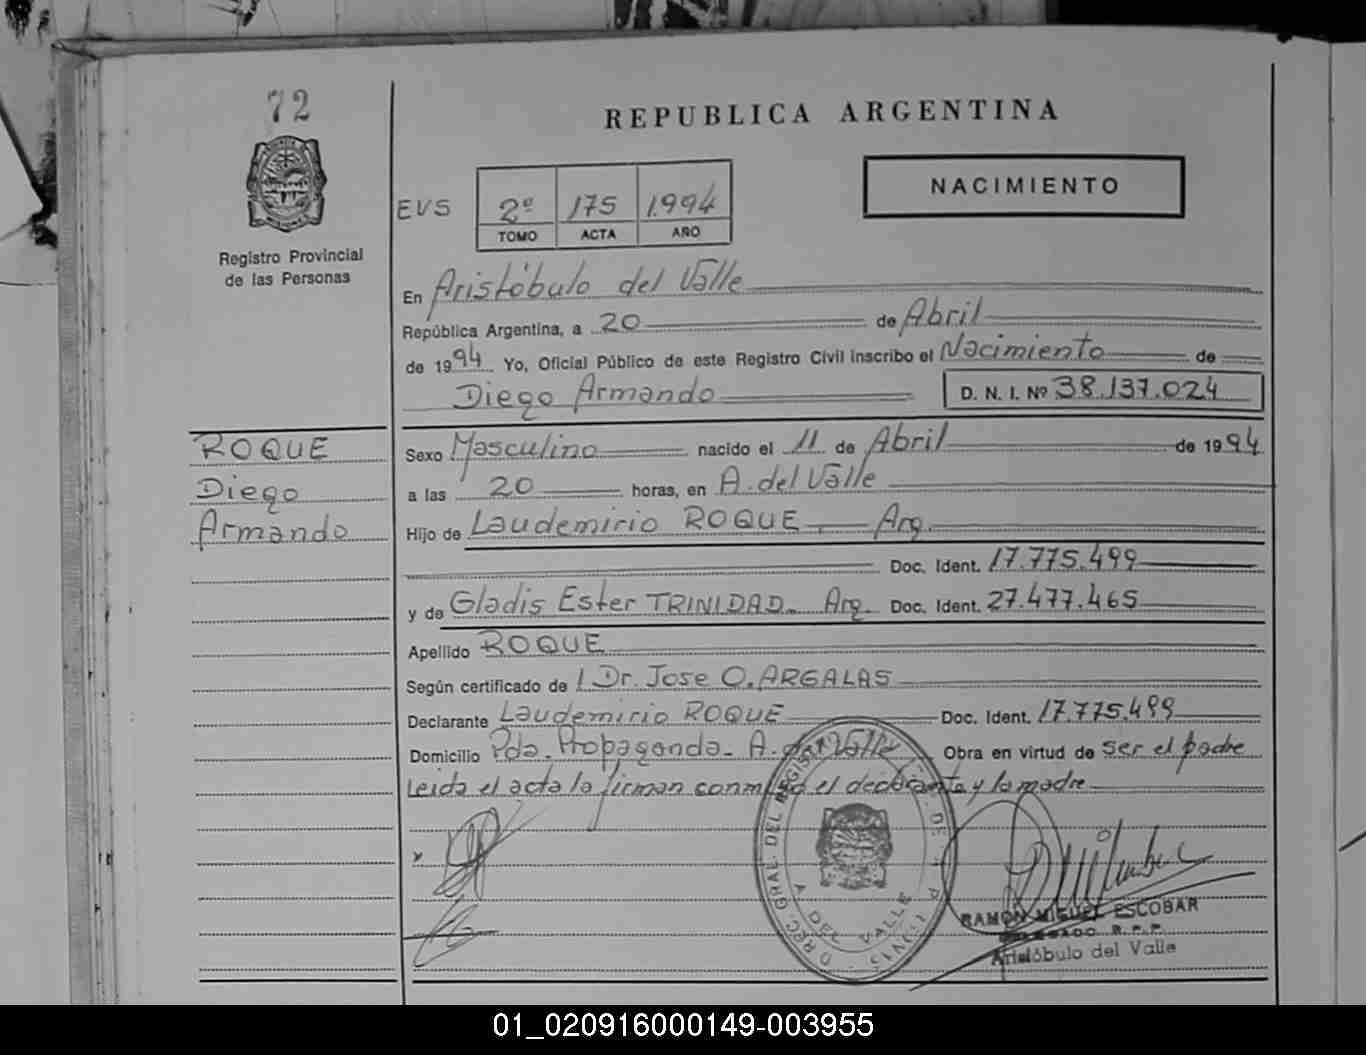 72
REPUBLICA ARGENTINA
NACIMIENTO
EVS
2º 175 1994
TOMO ACTA AÑO
Registro Provincial
de las Personas
En Aristóbulo del Valle
República Argentina, a 20 de Abril
de 1994 Yo, Oficial Público de este Registro Civil inscribo el Nacimiento de
Diego Armando D. N. I. Nº 38.137.024
ROQUE
Diego
Armando
Sexo Masculino nacido el 11 de Abril de 1994
a las 20 horas, en A. del Valle
Hijo de Laudemirio ROQUE Arg.
Doc. Ident. 17.775.499
y de Gladis Ester TRINIDAD. Arg. Doc. Ident. 27.477.465
Apellido ROQUE
Según certificado de Dr. Jose O. ARGALAS
Declarante Laudemirio ROQUE Doc. Ident. 17.775.499
Domicilio Pda. Propaganda. A. del Valle Obra en virtud de ser el padre
Leida el acta la firman conmigo el declarante y la madre
A DEL VALLE
RAMON MIGUEL ESCOBAR
DELEGADO R.P.P.
Aristóbulo del Valle
01_020916000149-003955